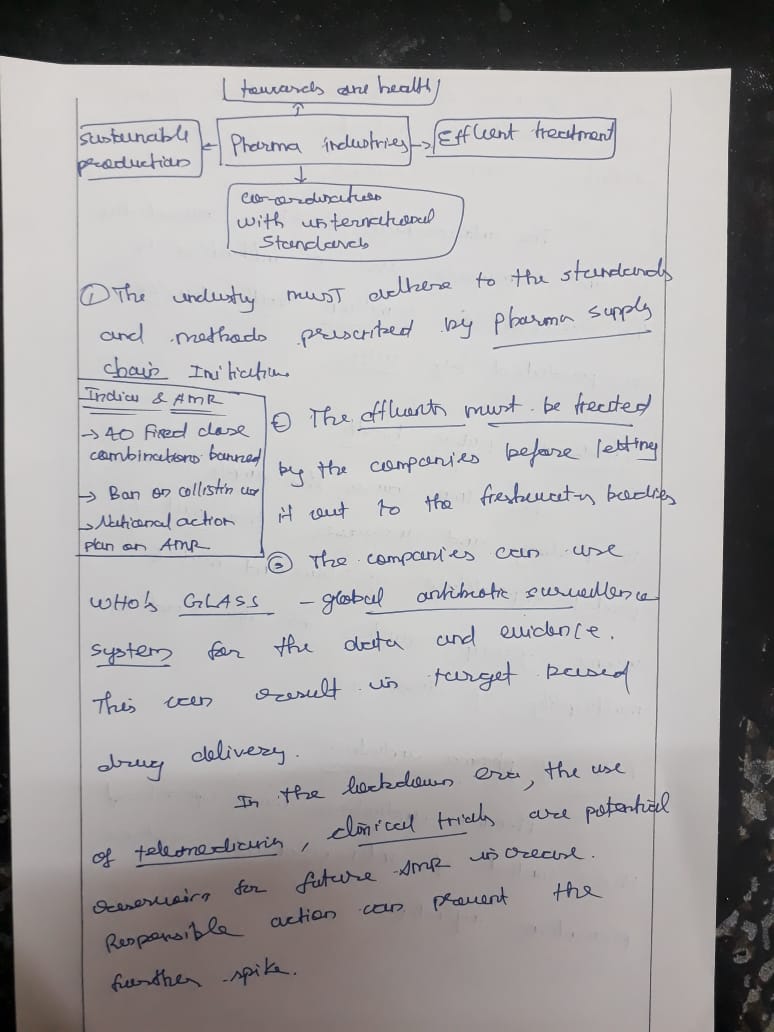 towards one health
Sustainable
production
Pharma industries
Effluent treatment
co-ordination
with international
Standards
① The industry must adhere to the standards
and methods prescribed by Pharma supply
chain Initiative
India & AMR
→ 40 fixed dose
combinations banned
→ Ban on collistin use
→ National action
plan on AMR
② The effluents must be treated
by the companies before letting
it out to the freshwater bodies
③ The companies can use
WHO's GLASS - global antibiotic surveillence
system for the data and evidence.
This can result in target based
drug delivery.
In the lockdown era, the use
of telemedicin, clinical trials are potential
reservoirs for future AMR increase.
Responsible action can prevent the
further spike.